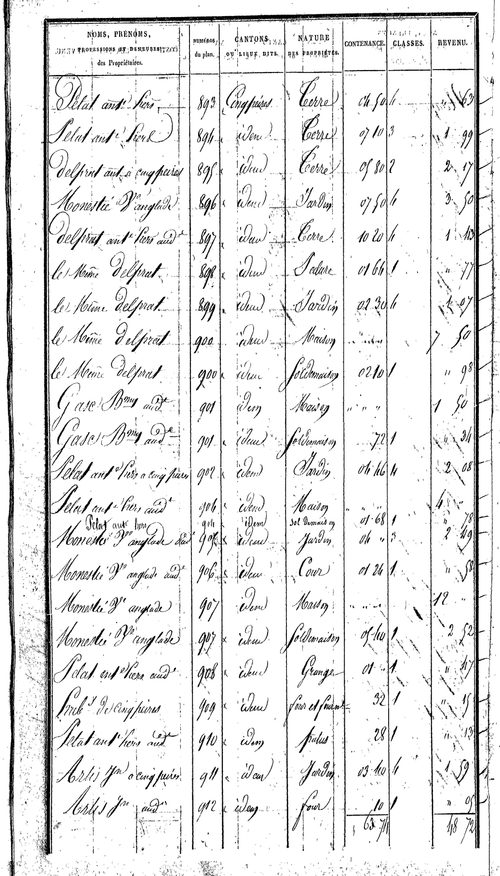 NOMS, PRÉNOMS, PROFESSIONS ET DEMEURES des Propriétaires. NUMÉROS du plan. CANTONS OU LIEUX DITS. NATURE DES PROPRIÉTÉS. CONTENANCE. CLASSES. REVENU.
Pelat ant.e hiers 893 Cinqpeires Terre 04 50 4 " 63
Pelat ant.e hiers 894 idem Terre 07 10 3 1 99
delprat ant. à cinqpeires 895 idem Terre 05 80 2 2 17
Monestié D.que anglade 896 idem Jardin 07 50 4 3 50
delprat ant.e hiers aud.t 897 idem Terre 10 20 4 1 43
le Même delprat 898 idem 01 66 1 " 77
le Même delprat 899 idem Jardin 02 30 4 1 07
le Même delprat 900 idem Maison " " 7 50
le Même delprat 900 idem Sol de maison 02 10 1 " 98
Gasc B.my aud.t 901 idem Maison " " " 1 50
Gasc B.my aud.t 901 idem Sol de maison 72 1 " 34
Pelat ant.e hiers à cinqpeires 902 idem Jardin 04 46 4 2 08
Pelat ant.e hiers aud.t 904 idem Maison " " 4 "
Pelat ant.e hiers 904 idem Sol de maison 01 68 1 " 78
Monestié D.que anglade aud.t 905 idem Jardin 04 " 3 2 49
Monestié D.que anglade aud.t 906 idem Cour 01 24 1 " 58
Monestié D.que anglade 907 idem Maison " " 12 "
Monestié D.que anglade 907 idem Sol de maison 05 40 1 2 52
Pelat ant.e hiers aud.t 908 idem Grange 01 " 1 " 47
hab.s de cinqpeires 909 idem four et fournil 32 1 " 15
Pelat ant.e hiers aud.t 910 idem patus 28 1 " 13
Arlés J.n à cinqpeires 911 idem Jardin 03 40 4 1 59
Arlés J.n aud.t 912 idem four 10 1 " 05
63 74 48 72